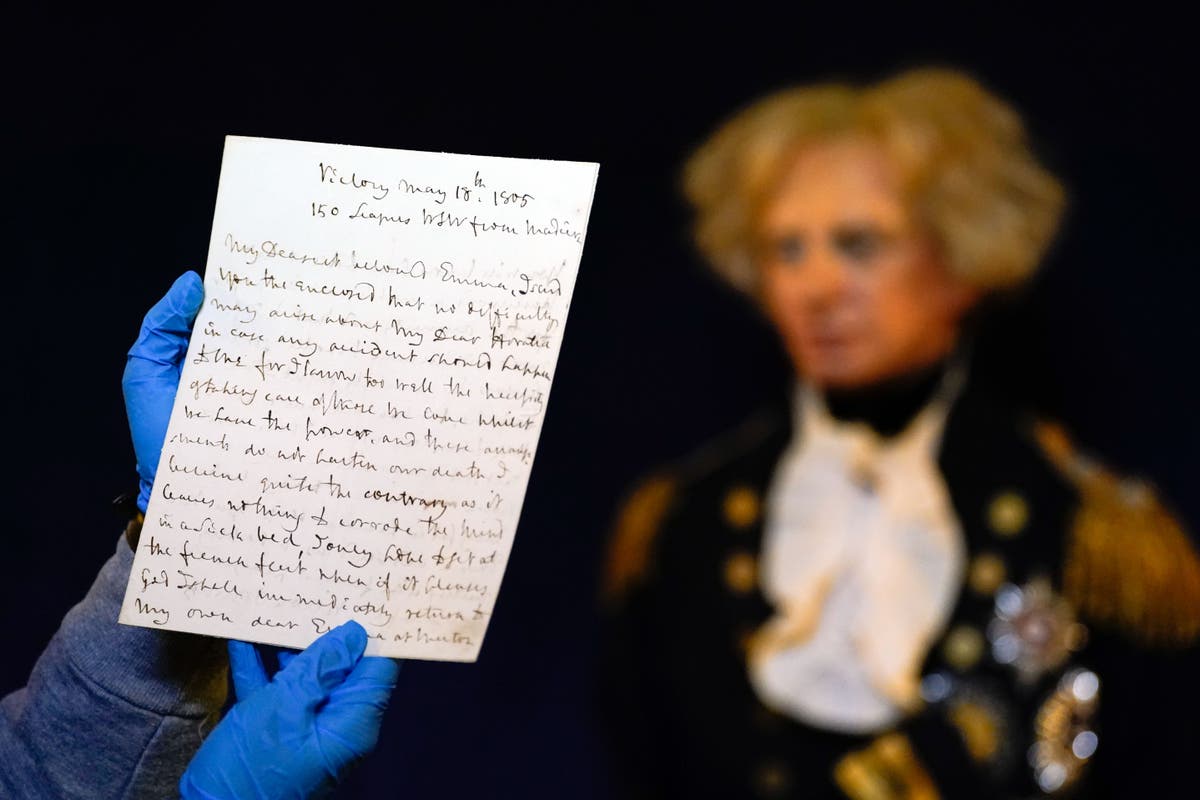 Victory May 18th. 1805
150 Leagues WSW from Madeira
My Dearest beloved Emma, I send
you the enclosed that no difficulty
may arise about My Dear Horatia
in case any accident should happen
to Me for I know too well the necessity
of taking care of those we Love whilst
we have the power, and these arrange
ments do not hasten our death, I
believe quite the contrary as it
leaves nothing to corrode the Mind
in a sick bed, I only hope to get at
the french fleet when if it pleases
God I shall immediately return to
My own dear Emma at Merton